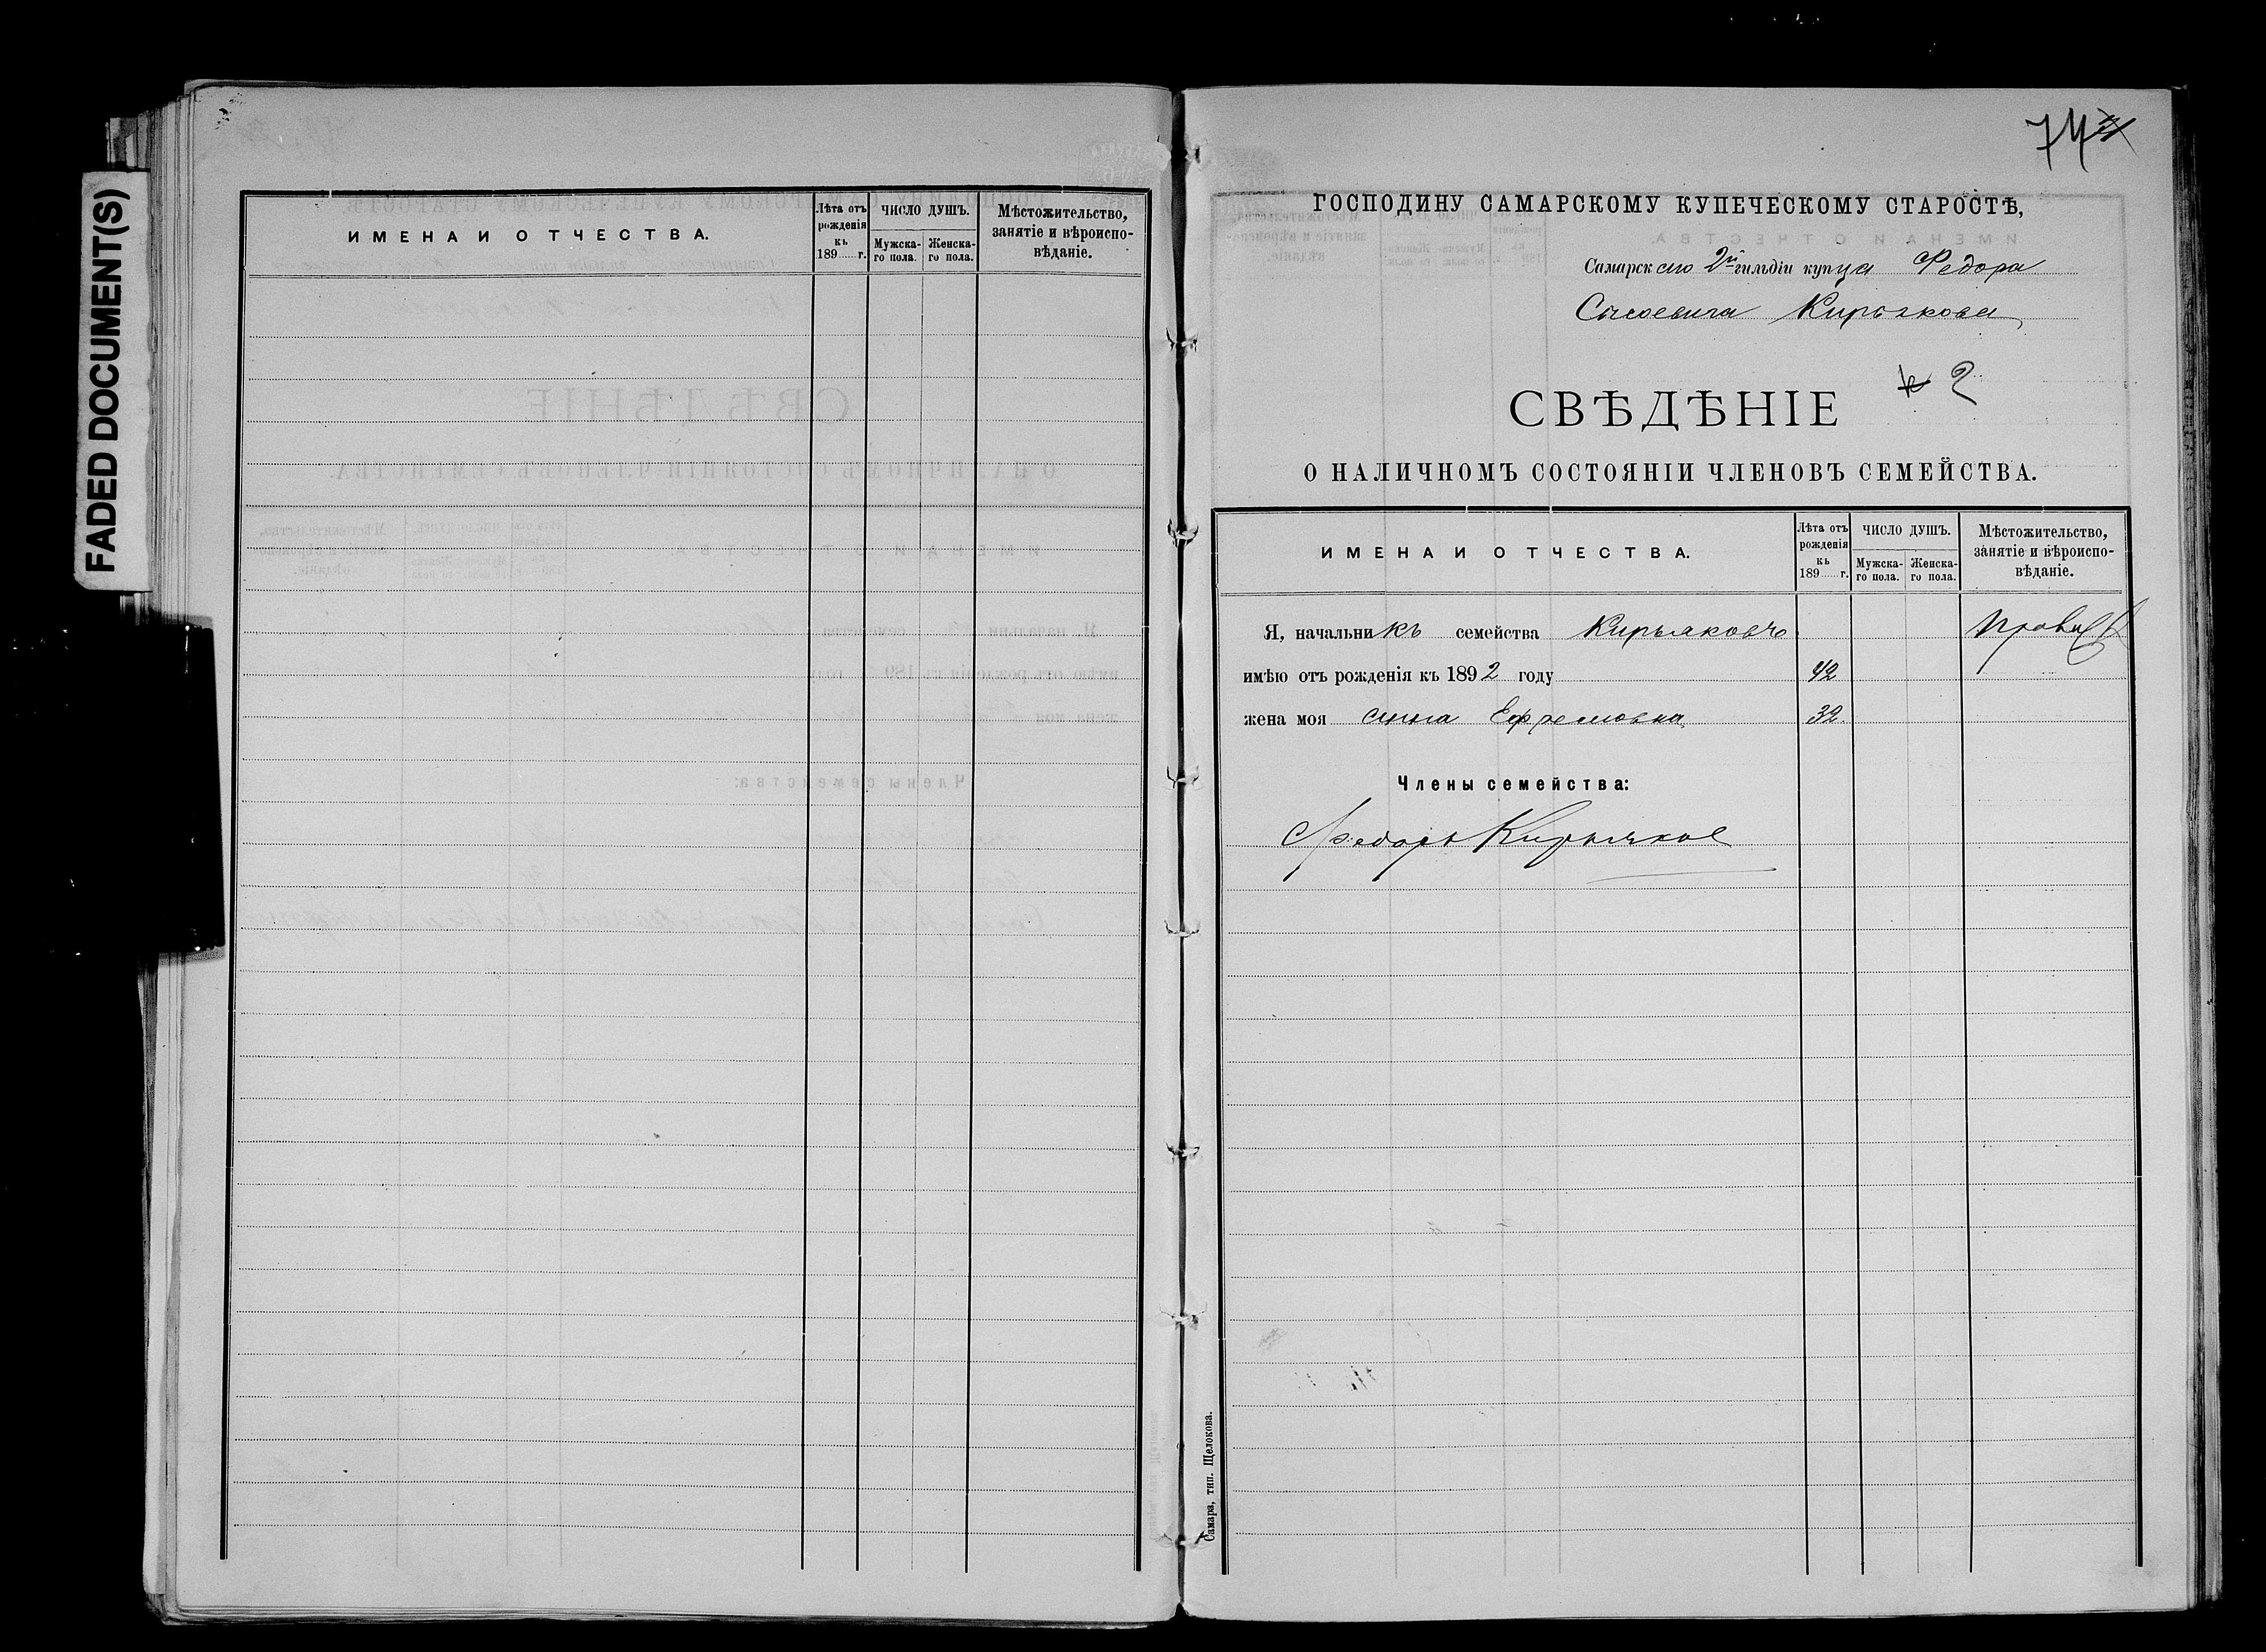 FADED DOCUMENT(S)
ИМЕНА И ОТЧЕСТВА.
Лѣта отъ рожденія къ 189 г.
ЧИСЛО ДУШЪ.
Мужска-го пола.
Женска-го пола.
Мѣстожительство, занятіе и вѣроиспо-вѣданіе.
74
ГОСПОДИНУ САМАРСКОМУ КУПЕЧЕСКОМУ СТАРОСТѢ,
Самарскаго 2й гильдіи купца Федора
Кирьякова
СВѢДѢНІЕ
2
О НАЛИЧНОМЪ СОСТОЯНІИ ЧЛЕНОВЪ СЕМЕЙСТВА.
ИМЕНА И ОТЧЕСТВА.
Лѣта отъ рожденія къ 189 г.
ЧИСЛО ДУШЪ.
Мужска-го пола.
Женска-го пола.
Мѣстожительство, занятіе и вѣроиспо-вѣданіе.
Я, начальникъ семейства Кирьяковъ
имѣю отъ рожденія къ 1892 году 42
жена моя Анна Ефремовна 32.
Члены семейства:
Федоръ Кирьяков
Самара, тип. Щелокова.